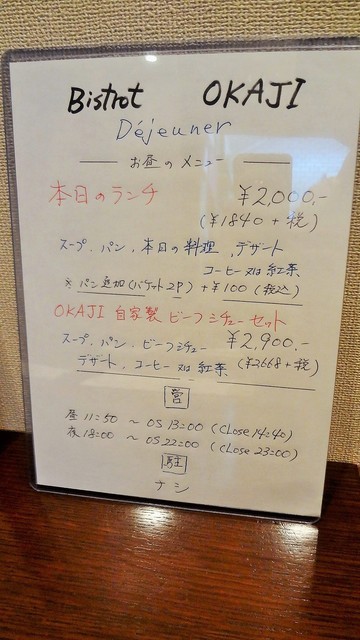 Bistrot OKAJI
Déjeuner
お昼のメニュー
本日のランチ ¥2,000.-
(¥1840+税)
スープ、パン、本日の料理、デザート
コーヒー又は紅茶
※パン追加(バゲット2P) +¥100(税込)
OKAJI 自家製 ビーフシチューセット
スープ、パン、ビーフシチュー ¥2,900.-
デザート、コーヒー又は紅茶 (¥2668+税)
営
昼 11:50 ～ OS 13:00 (CLose 14:40)
夜 18:00 ～ OS 22:00 (CLose 23:00)
駐
ナシ